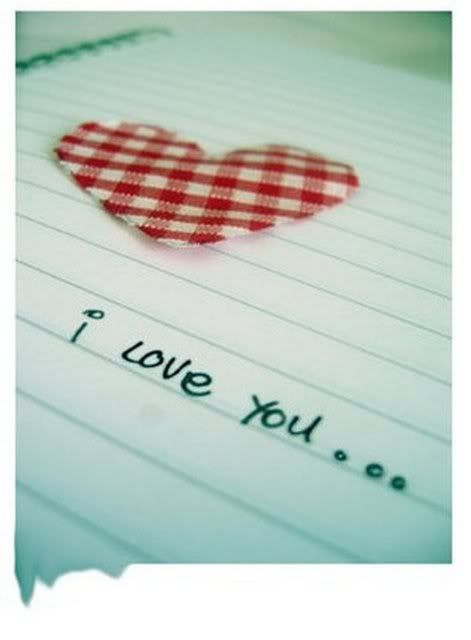 i Love You...